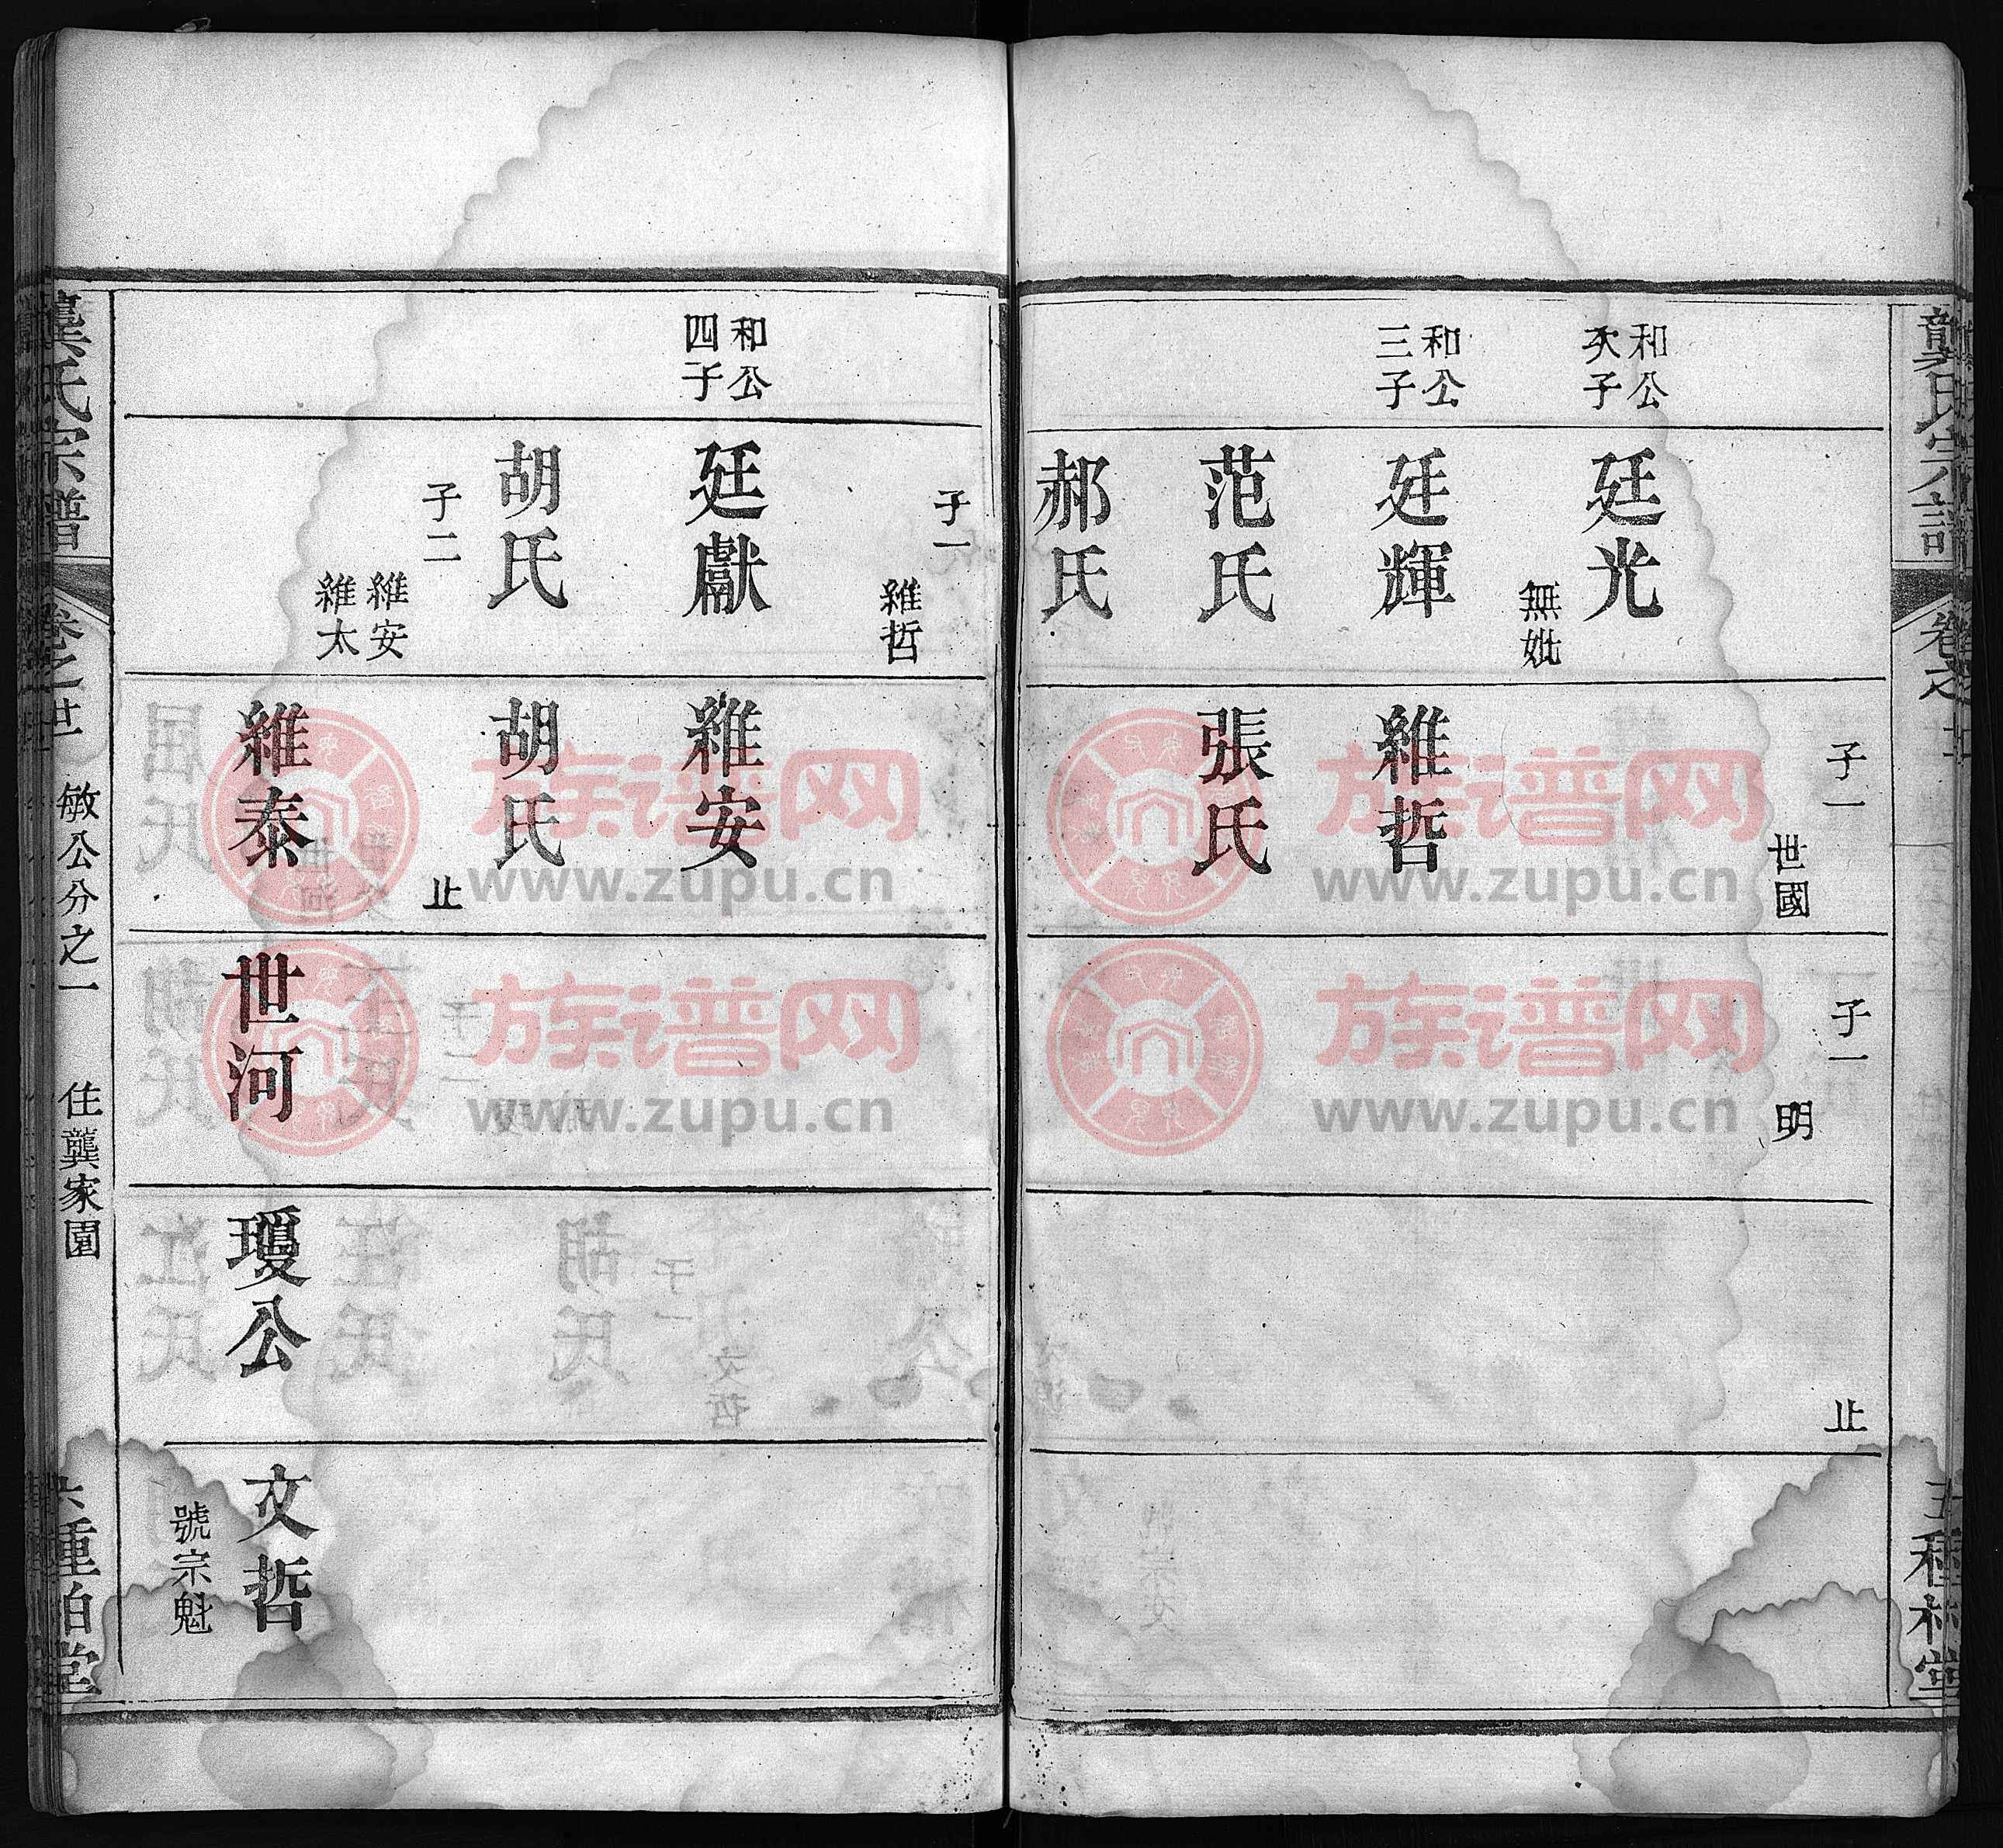 龔氏宗譜
卷之
種栢堂
和公
次子
和公
三子
廷光
無妣
廷輝
范氏
郝氏
子一
世國
維哲
張氏
子一
明
止
和公
四子
子一
維哲
廷獻
胡氏
子二
維安
維太
維安
胡氏
止
維泰
世河
瓊公
文哲
號宗魁
龔氏宗譜
卷之廿一
敏公分之一
住龔家園
種栢堂
族谱网
www.zupu.cn
族谱网
www.zupu.cn
族谱网
www.zupu.cn
族谱网
www.zupu.cn